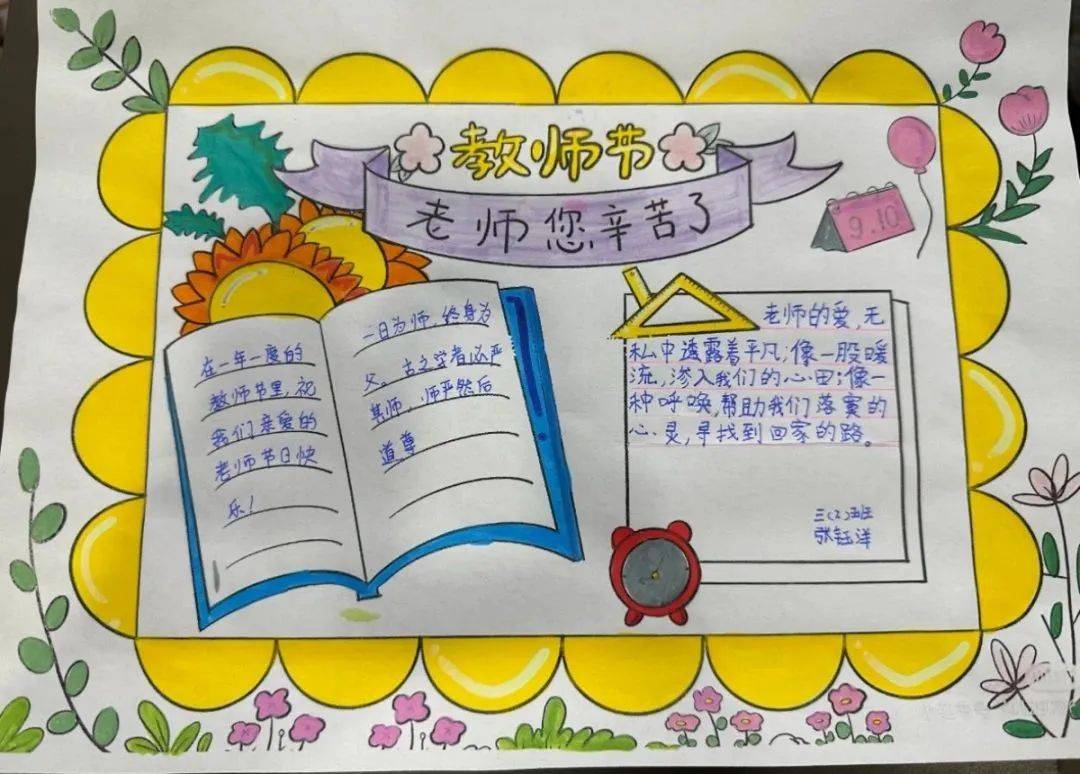 教师节
老师您辛苦了
9.10
在一年一度的
教师节里,祝
我们亲爱的
老师节日快
乐!
一日为师,终身为
父。古之学者必严
其师,师严然后
道尊
老师的爱,无
私中透露着平凡;像一股暖
流,渗入我们的心田;像一
种呼唤,帮助我们落寞的
心灵,寻找到回家的路。
三(2)班
张钰洋